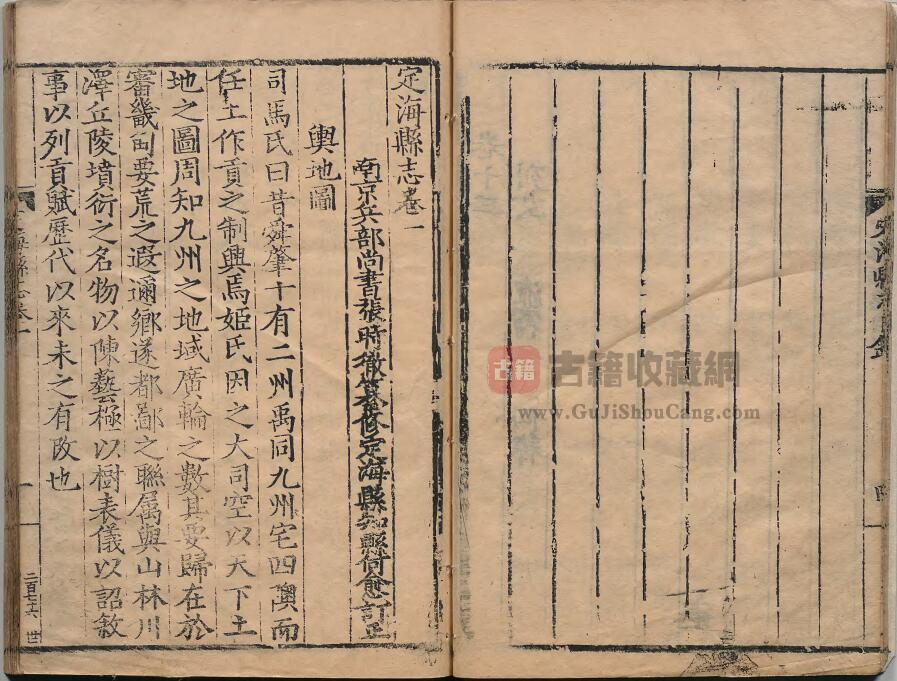 定海縣志目錄
四
古籍
古籍收藏網
www.GuJiShouCang.com
定海縣志卷一
南京兵部尚書張時徹纂修定海縣知縣何愈訂正
輿地圖
司馬氏曰昔舜肇十有二州禹同九州宅四隩而
任土作貢之制興焉姬氏因之大司空以天下土
地之圖周知九州之地域廣輪之數其要歸在於
審畿甸要荒之遐邇鄉遂都鄙之聯屬與山林川
澤丘陵墳衍之名物以陳藝極以樹表儀以詔敘
事以列貢賦歷代以來未之有改也
海縣志卷一
一
二百七十六 世